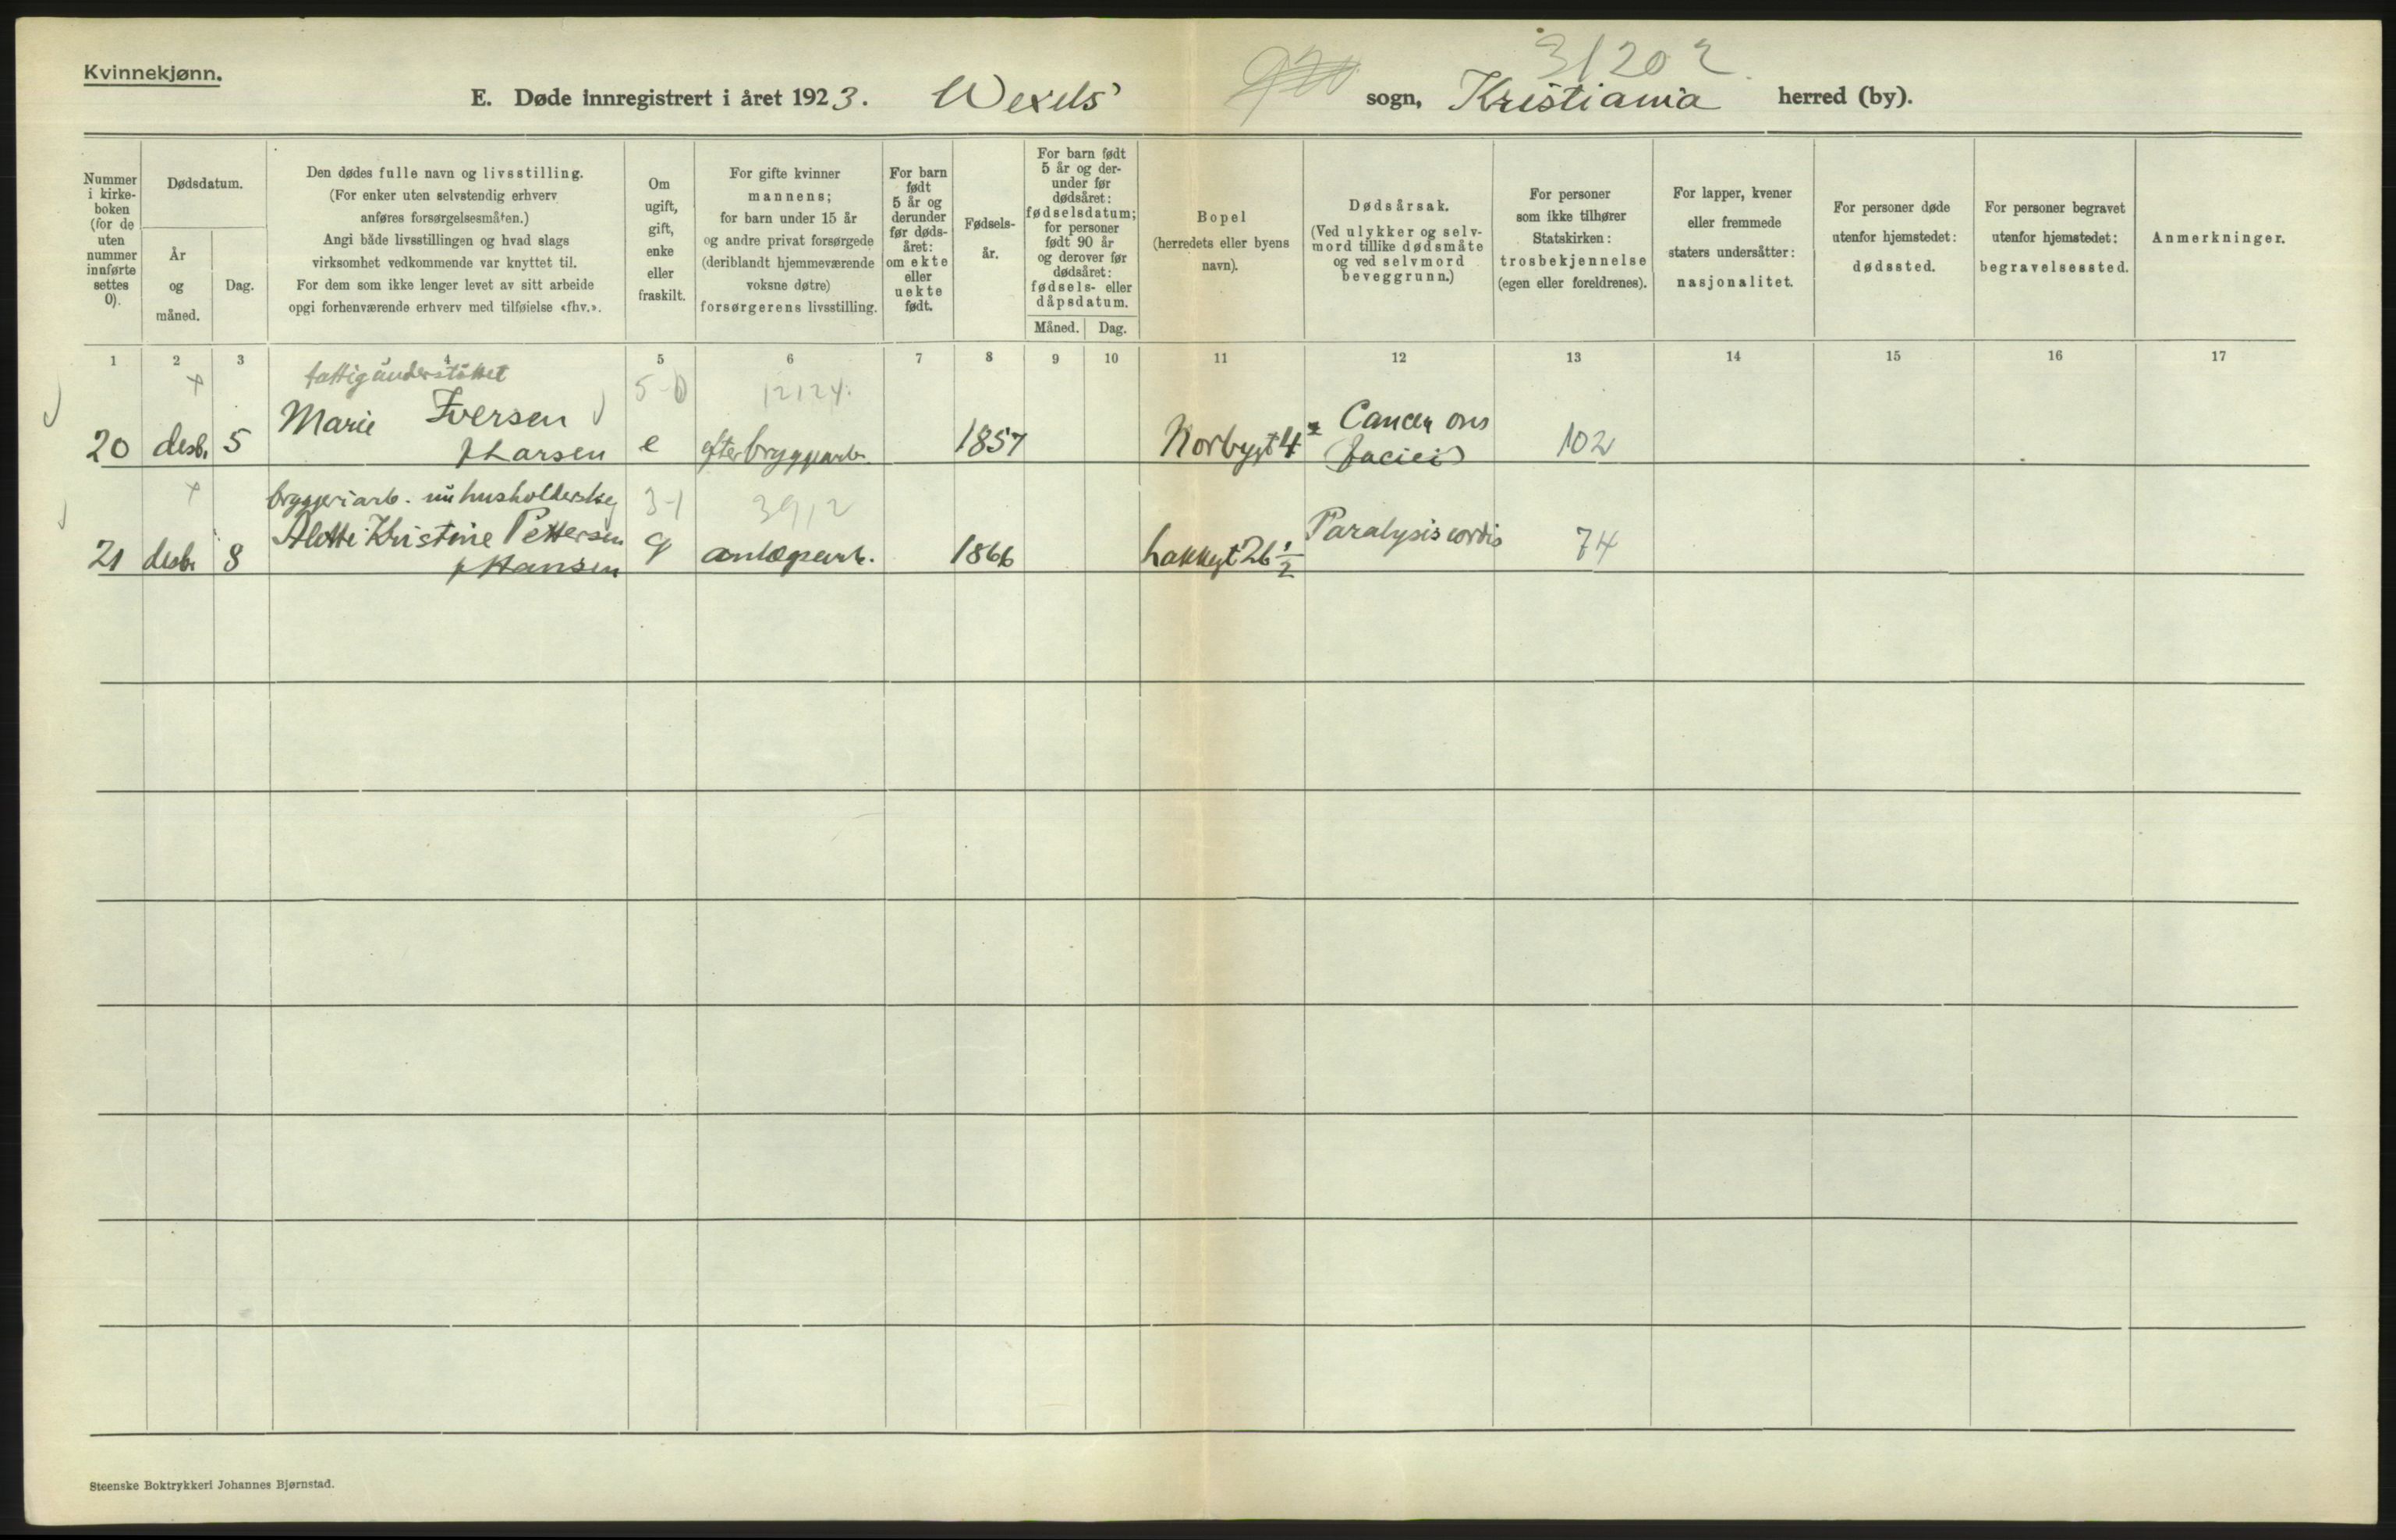 Kvinnekjønn.
31202
E. Døde innregistrert i året 1923. Wexels' sogn, Kristiania herred (by).
Nummer i kirke-boken (for de uten nummer innførte settes 0).
Dødsdatum.
År og måned.
Dag.
Den dødes fulle navn og livsstilling.
(For enker uten selvstendig erhverv
anføres forsørgelsesmåten.)
Angi både livsstillingen og hvad slags
virksomhet vedkommende var knyttet til.
For dem som ikke lenger levet av sitt arbeide
opgi forhenværende erhverv med tilføielse «fhv.».
Om
ugift,
gift,
enke
eller
fraskilt.
For gifte kvinner
mannens;
for barn under 15 år
og andre privat forsørgede
(deriblandt hjemmeværende
voksne døtre)
forsørgerens livsstilling.
For barn
født
5 år og
derunder
før døds-
året:
om ekte
eller
uekte
født.
Fødsels-
år.
For barn født
5 år og der-
under før
dødsåret:
fødselsdatum;
for personer
født 90 år
og derover før
dødsåret:
fødsels- eller
dåpsdatum.
Måned. Dag.
Bopel
(herredets eller byens
navn).
Dødsårsak.
(Ved ulykker og selv-
mord tillike dødsmåte
og ved selvmord
beveggrunn.)
For personer
som ikke tilhører
Statskirken:
trosbekjennelse
(egen eller foreldrenes).
For lapper, kvener
eller fremmede
staters undersåtter:
nasjonalitet.
For personer døde
utenfor hjemstedet:
dødssted.
For personer begravet
utenfor hjemstedet:
begravelsessted.
Anmerkninger.
1 2 3 4 5 6 7 8 9 10 11 12 13 14 15 16 17
fattigunderstøttet 5-0 12124.
Marie Iversen Cancer oris
20 desb. 5 f Larsen e efter bryggarb. 1857 Norbygt 4 (faciei) 102
bryggeriarb. nu husholderske 3-1 3912
Alette Kristine Pettersen Paralysis cordis
21 desb. 8 f Hansen g anlægsarb. 1866 Lakkegt 26 1/2 74
Steenske Boktrykkeri Johannes Bjørnstad.